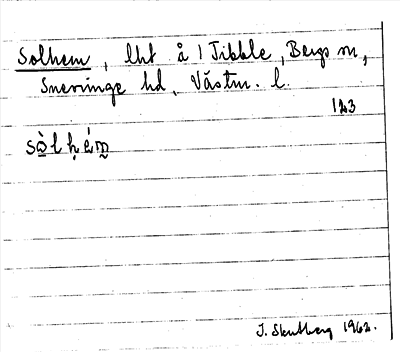 Solhem, lht å 1 Tibble, Bergs sn,
Snevringe hd, Västm. l.
123
sὰlhém
J. Skutberg 1962.